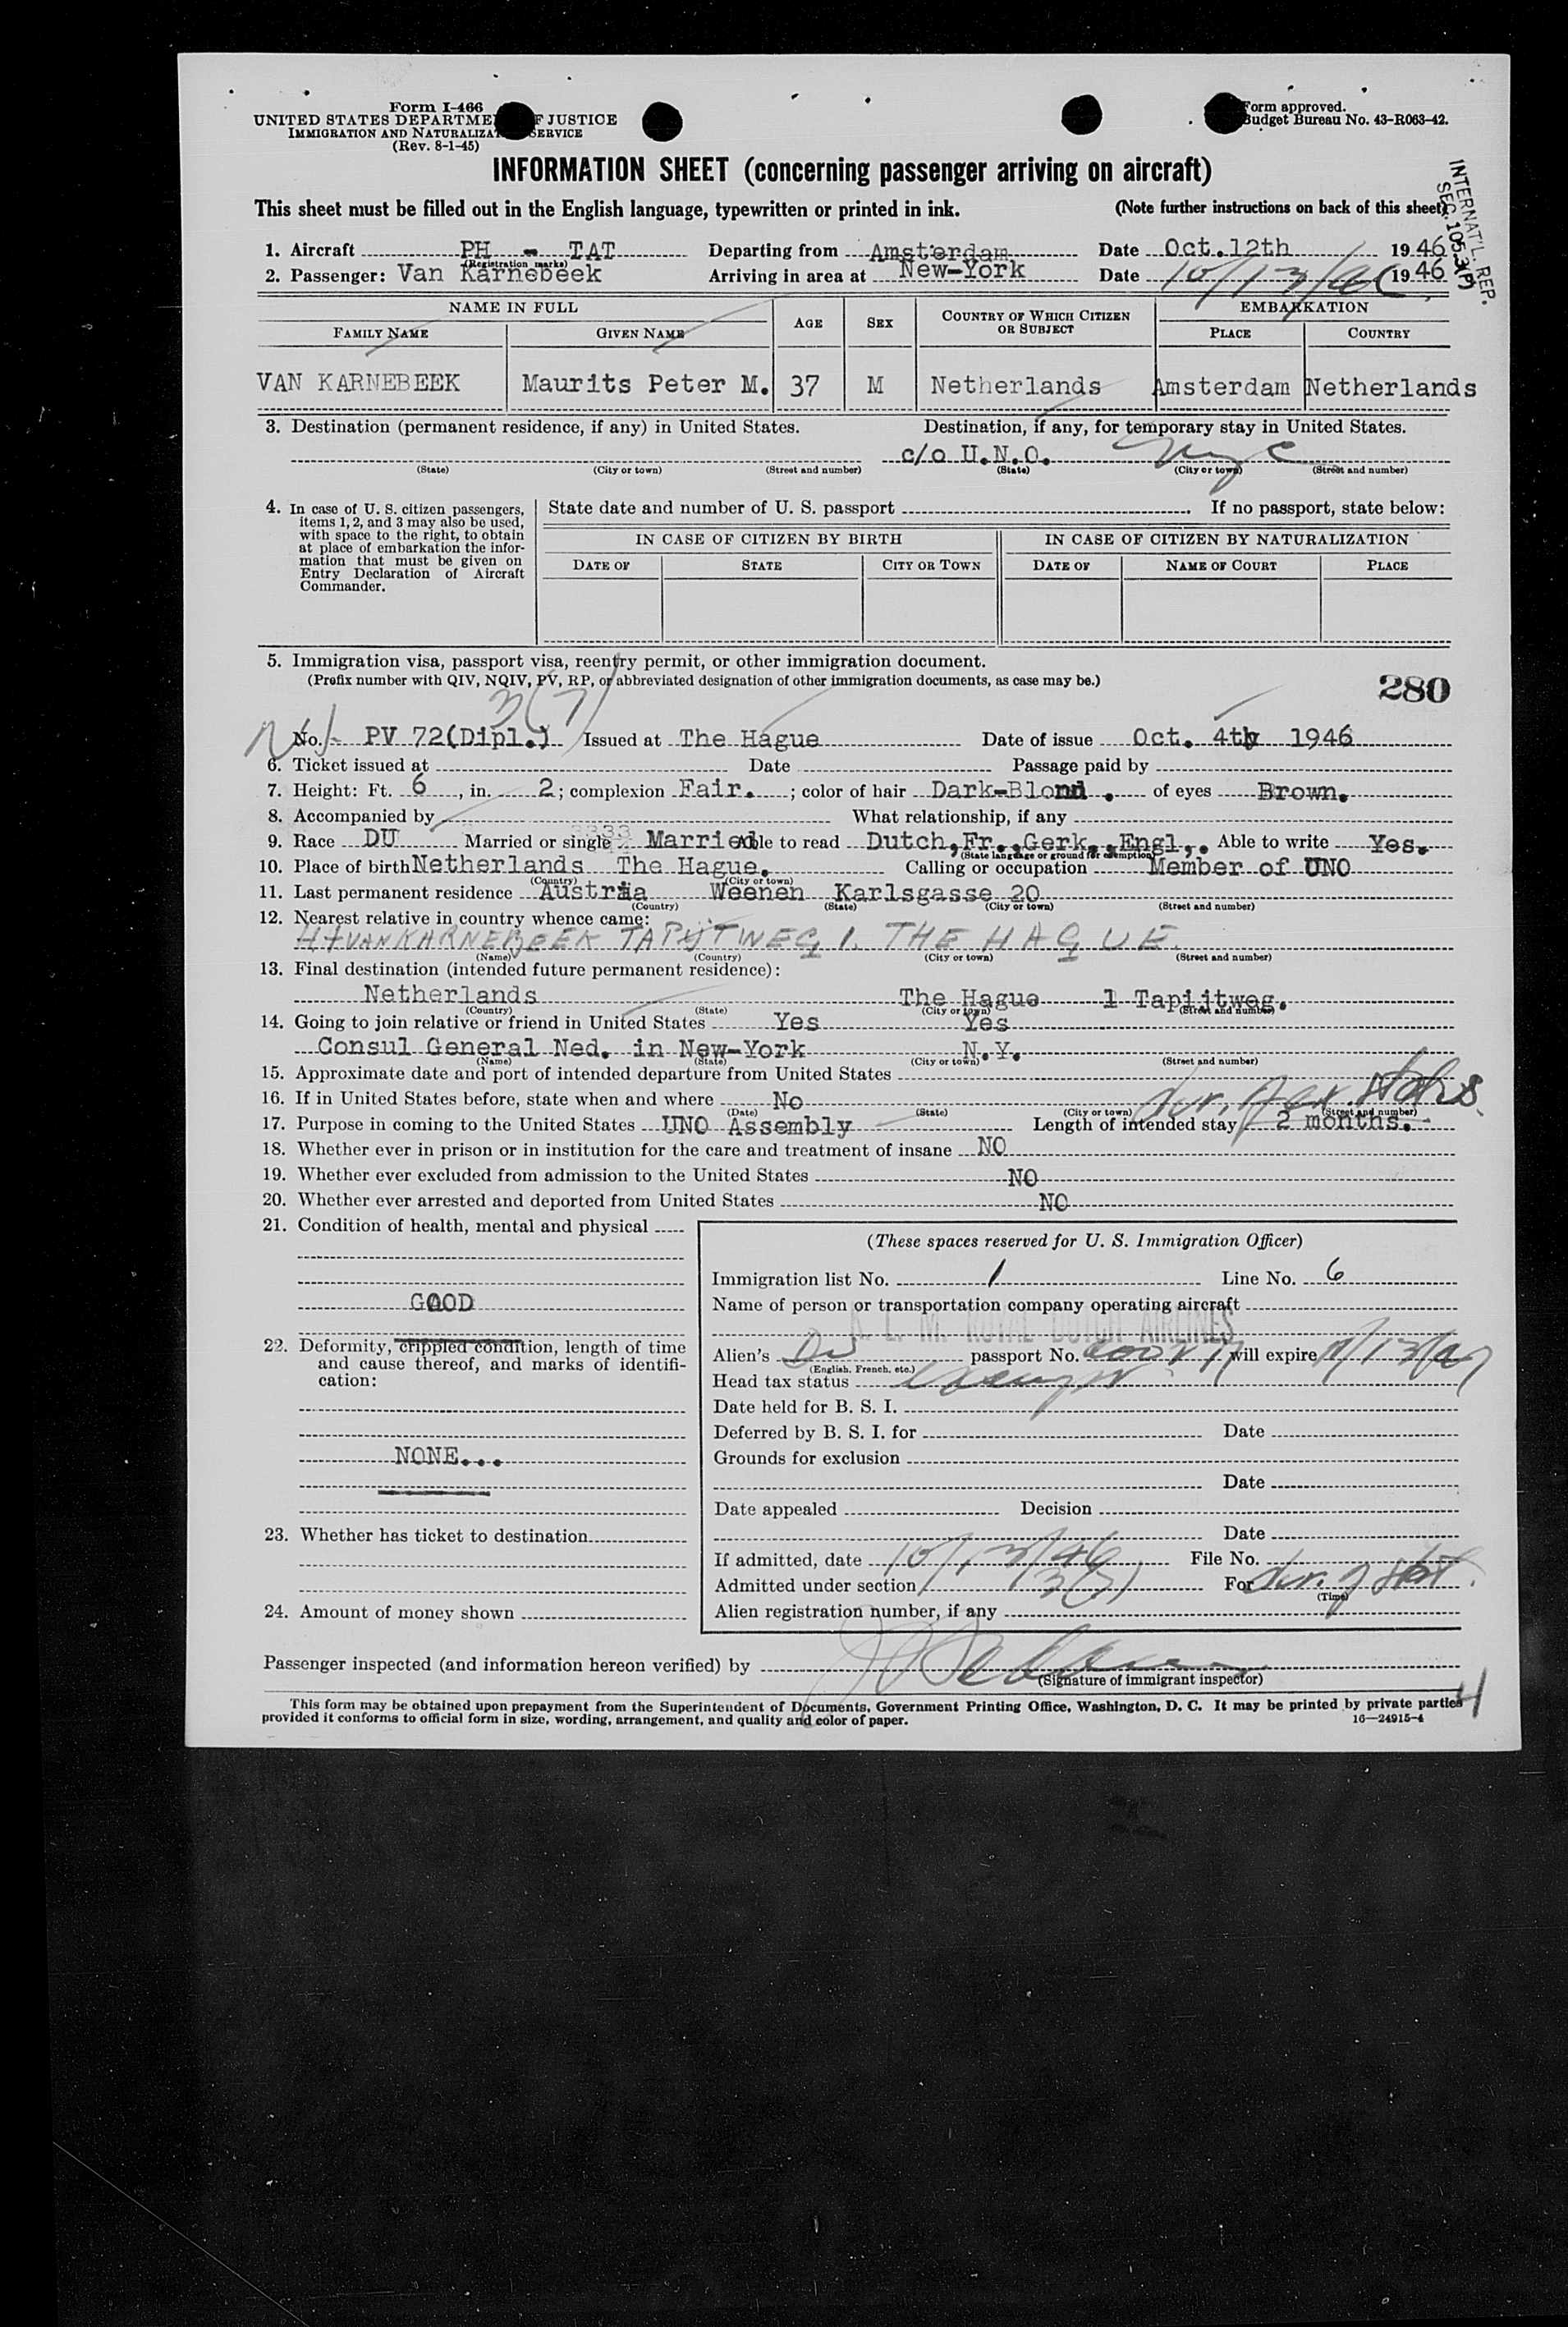 Form I-466
UNITED STATES DEPARTMENT OF JUSTICE
IMMIGRATION AND NATURALIZATION SERVICE
(Rev. 8-1-45)
Form approved.
Budget Bureau No. 43-R063-42.
INFORMATION SHEET (concerning passenger arriving on aircraft)
This sheet must be filled out in the English language, typewritten or printed in ink. (Note further instructions on back of this sheet)
INTERNAT'L. REP.
SEC. 105.3(P)
1. Aircraft PH - TAT Departing from Amsterdam Date Oct.12th 1946
(Registration marks)
2. Passenger: Van Karnebeek Arriving in area at New-York Date 10/13/46 1946
NAME IN FULL AGE SEX COUNTRY OF WHICH CITIZEN OR SUBJECT EMBARKATION
FAMILY NAME GIVEN NAME PLACE COUNTRY
VAN KARNEBEEK Maurits Peter M. 37 M Netherlands Amsterdam Netherlands
3. Destination (permanent residence, if any) in United States. Destination, if any, for temporary stay in United States.
c/o U.N.O. NYC
(State) (City or town) (Street and number) (State) (City or town) (Street and number)
4. In case of U. S. citizen passengers, items 1, 2, and 3 may also be used, with space to the right, to obtain at place of embarkation the information that must be given on Entry Declaration of Aircraft Commander.
State date and number of U. S. passport If no passport, state below:
IN CASE OF CITIZEN BY BIRTH IN CASE OF CITIZEN BY NATURALIZATION
DATE OF STATE CITY OR TOWN DATE OF NAME OF COURT PLACE
5. Immigration visa, passport visa, reentry permit, or other immigration document.
(Prefix number with QIV, NQIV, PV, RP, or abbreviated designation of other immigration documents, as case may be.)
280
3(7)
No. - PV 72(Dipl.) Issued at The Hague Date of issue Oct. 4th 1946
6. Ticket issued at Date Passage paid by
7. Height: Ft. 6, in. 2; complexion Fair. ; color of hair Dark-Blond . of eyes Brown.
8. Accompanied by What relationship, if any
9. Race DU Married or single Married Able to read Dutch,Fr.,Gerk.,Engl,. Able to write Yes.
(State language or ground for exemption)
10. Place of birth Netherlands The Hague. Calling or occupation Member of UNO
(Country) (City or town)
11. Last permanent residence Austria Weenen Karlsgasse 20
(Country) (State) (City or town) (Street and number)
12. Nearest relative in country whence came:
H. VAN KARNEBEEK TAPIJTWEG 1. THE HAGUE.
(Name) (Country) (City or town) (Street and number)
13. Final destination (intended future permanent residence):
Netherlands The Hague 1 Tapijtweg.
(Country) (State) (City or town) (Street and number)
14. Going to join relative or friend in United States Yes Yes
Consul General Ned. in New-York N.Y.
(Name) (State) (City or town) (Street and number)
15. Approximate date and port of intended departure from United States
16. If in United States before, state when and where No
(Date) (State) (City or town) (Street and number)
17. Purpose in coming to the United States UNO Assembly Length of intended stay 2 months.-
18. Whether ever in prison or in institution for the care and treatment of insane NO
19. Whether ever excluded from admission to the United States NO
20. Whether ever arrested and deported from United States NO
21. Condition of health, mental and physical
GOOD
22. Deformity, crippled condition, length of time and cause thereof, and marks of identification:
NONE...
23. Whether has ticket to destination
24. Amount of money shown
(These spaces reserved for U. S. Immigration Officer)
Immigration list No. 1 Line No. 6
Name of person or transportation company operating aircraft
K. L. M. ROYAL DUTCH AIRLINES
Alien's Du passport No. will expire
(English, French, etc.)
Head tax status exempt
Date held for B. S. I.
Deferred by B. S. I. for Date
Grounds for exclusion
Date
Date appealed Decision
Date
If admitted, date 10/13/46 File No.
Admitted under section 3(7) For dur. of
(Time)
Alien registration number, if any
Passenger inspected (and information hereon verified) by
(Signature of immigrant inspector)
This form may be obtained upon prepayment from the Superintendent of Documents, Government Printing Office, Washington, D. C. It may be printed by private parties
provided it conforms to official form in size, wording, arrangement, and quality and color of paper. 16—24915-4
4